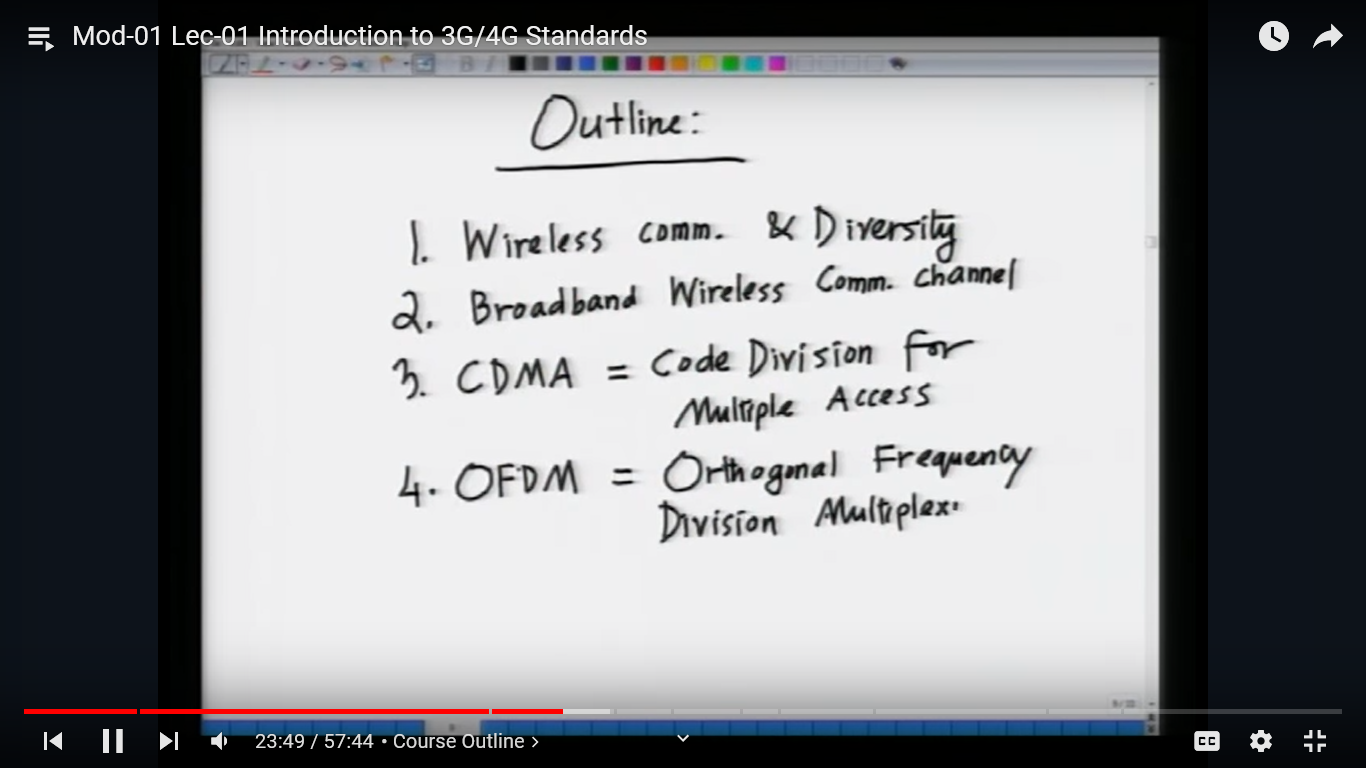 Mod-01 Lec-01 Introduction to 3G/4G Standards
B I
Outline:
1. Wireless comm. & Diversity
2. Broadband Wireless Comm. channel
3. CDMA = Code Division for
Multiple Access
4. OFDM = Orthogonal Frequency
Division Multiplex.
23:49 / 57:44 • Course Outline
CC